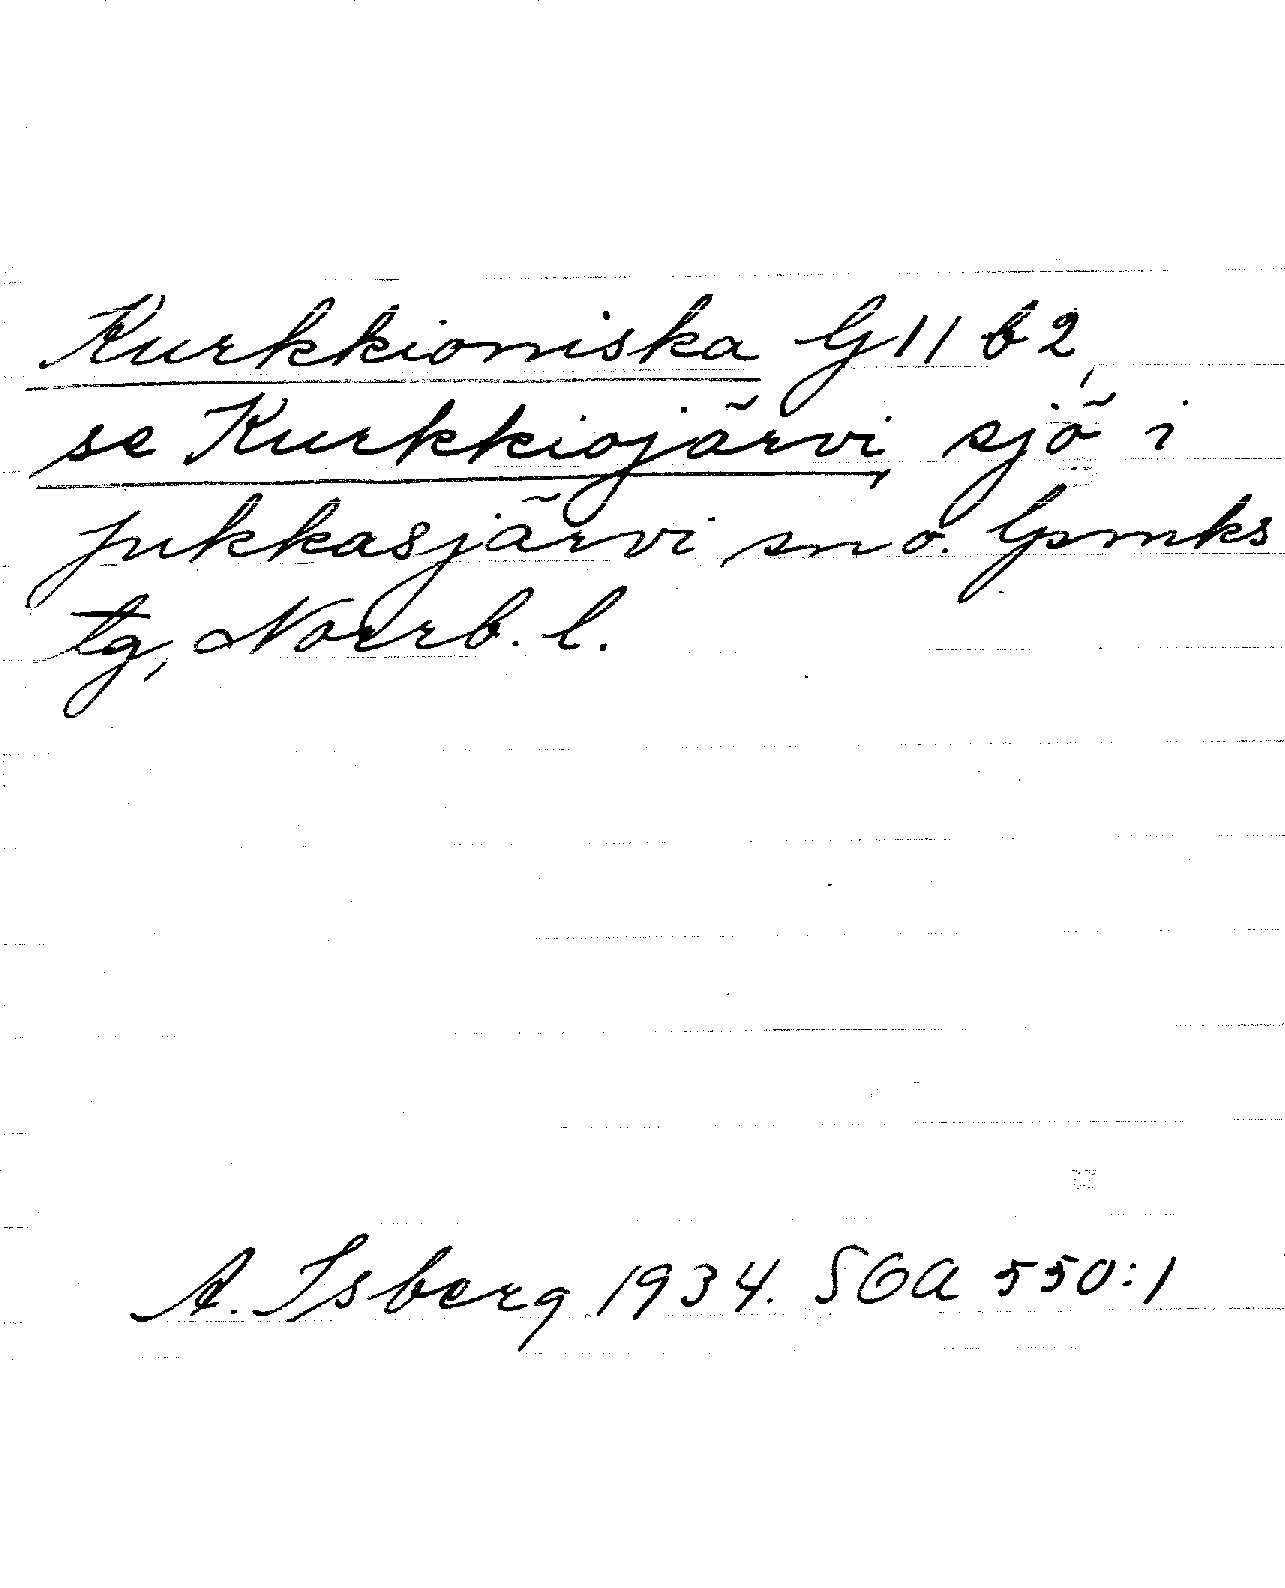 Kurkkioniska G 11 b 2,
se Kurkkiojärvi, sjö i
Jukkasjärvi sn o. lpmks
tg, Norrb. l.
A. Isberg 1934. SOA 550:1